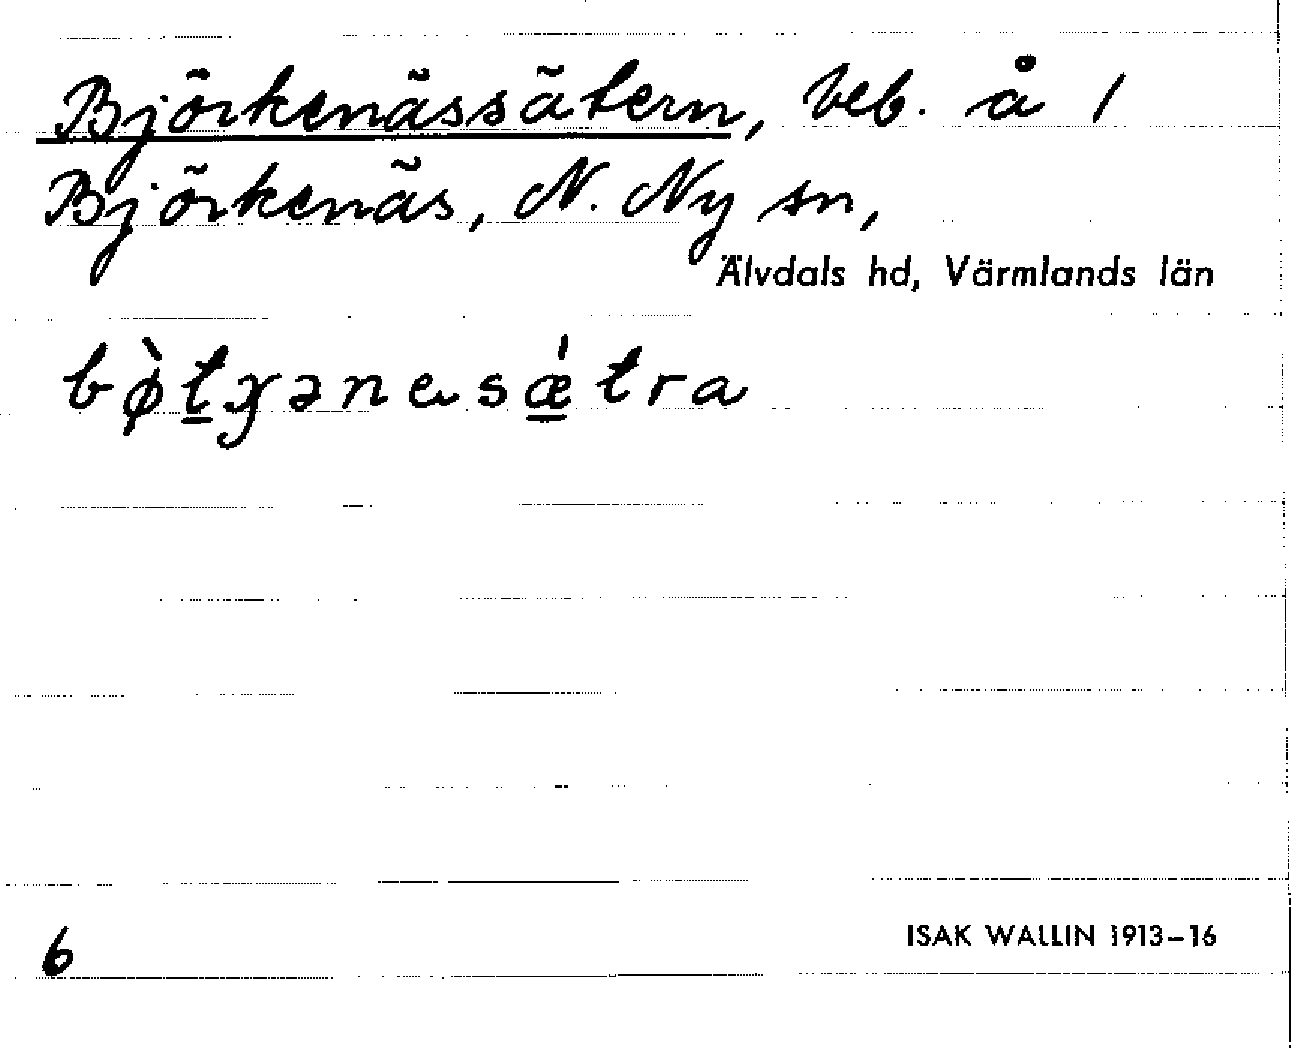 Björkenässätern, beb. å 1
Björkenäs, N. Ny sn,
Älvdals hd, Värmlands län
bø̀t̠ɣənesǽ̠tra
6
ISAK WALLIN 1913–16